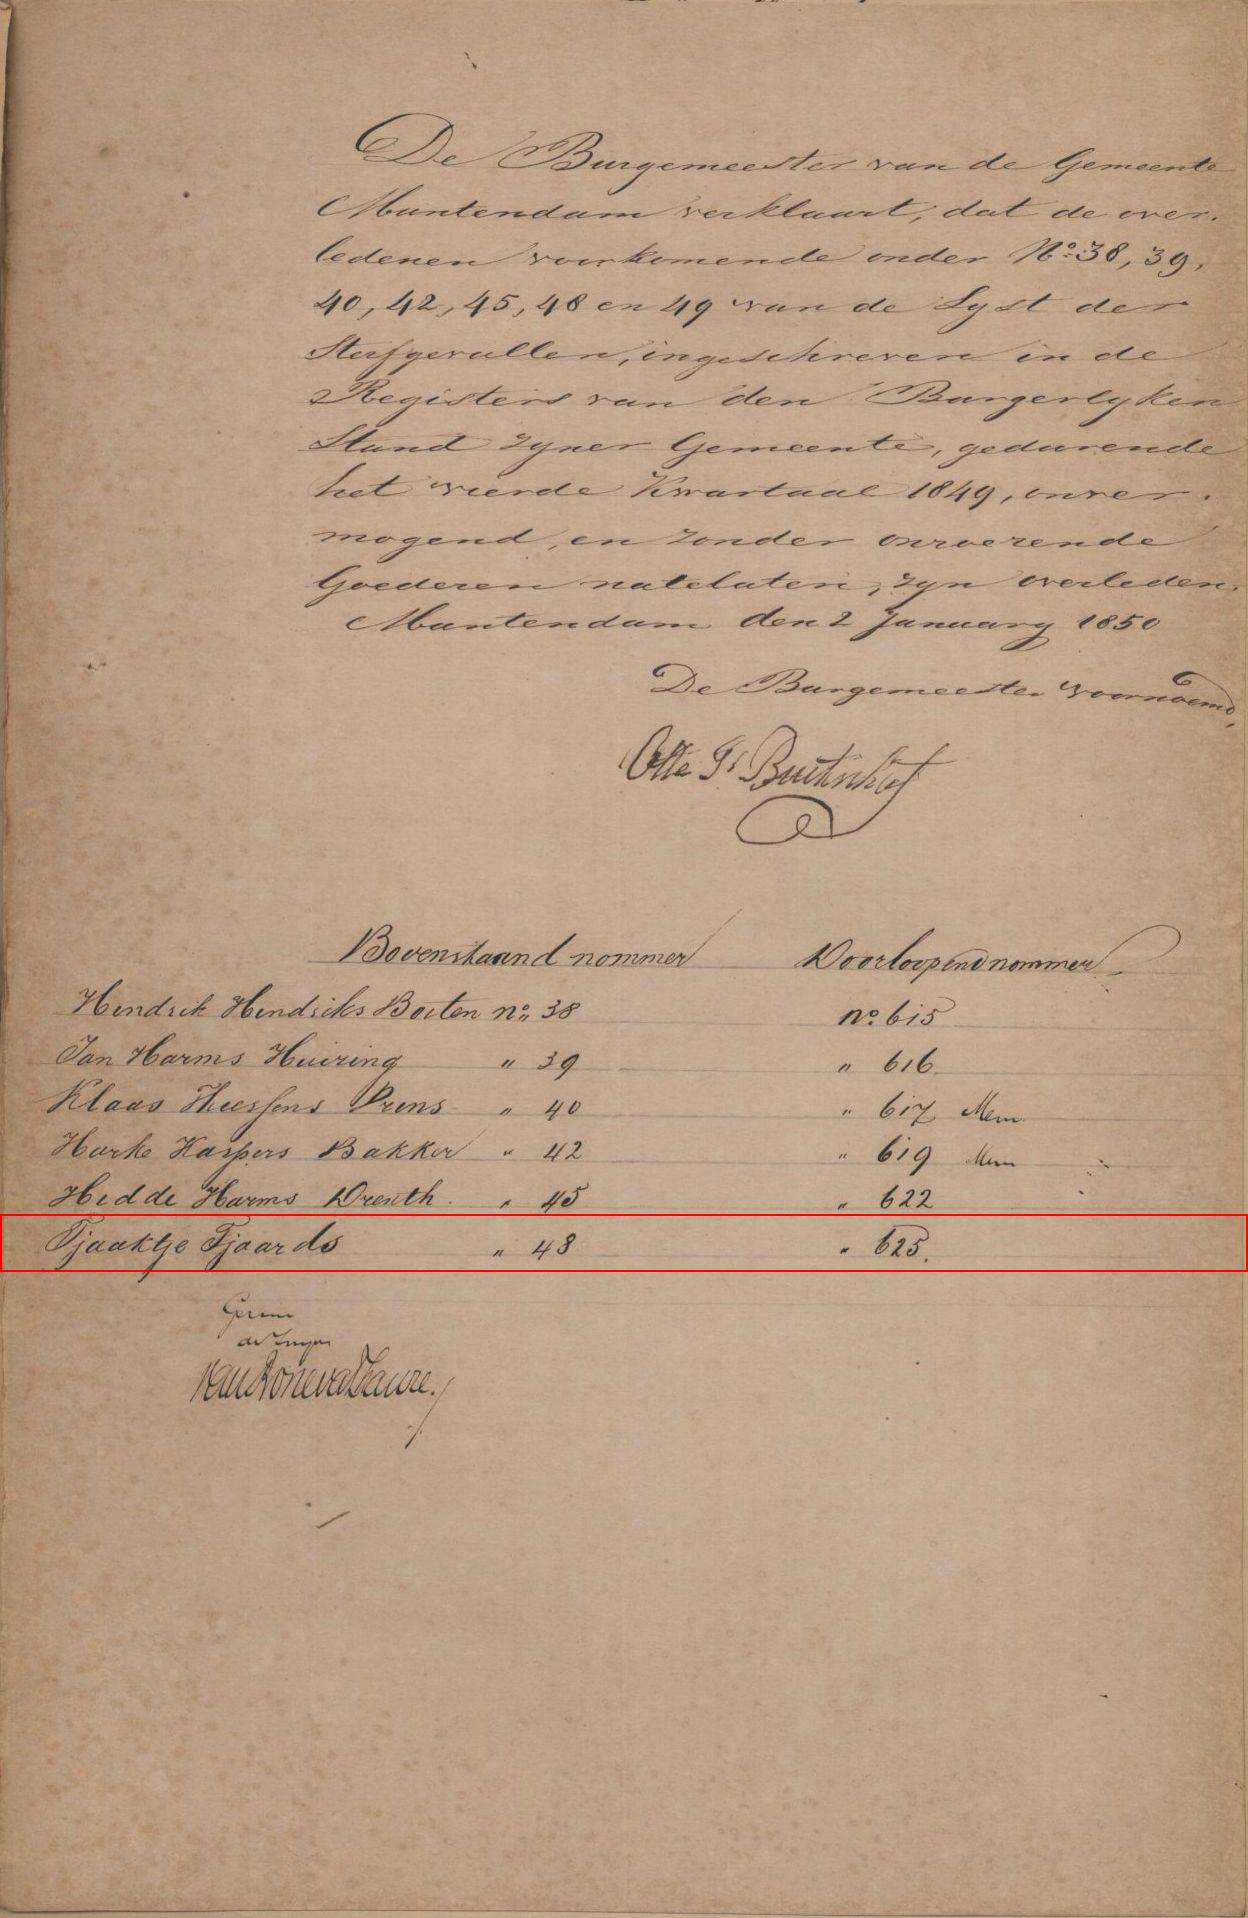 De Burgemeester van de Gemeente
Muntendam verklaart, dat de over-
ledenen voorkomende onder No. 38, 39,
40, 42, 45, 48 en 49 van de Lyst der
Sterfgevallen, ingeschreven in de
Registers van den Burgerlyken
Stand zyner Gemeente, gedurende
het vierde Kwartaal 1849, onver-
mogend, en zonder onroerende
Goederen natelaten, zyn overleden.
Muntendam den 2 January 1850
De Burgemeester voornoemd,
Bovenstaand nommer Doorloopend nommer
Hendrik Hendriks Boiten no. 38 no. 615
Jan Harms Huizing " 39 " 616
Klaas Heessens Prins " 40 " 617 Mem
Harke Kaspers Bakker " 42 " 619 Mem
Hedde Harms Drenth " 45 " 622
Tjaaktje Tjaards " 48 " 625.